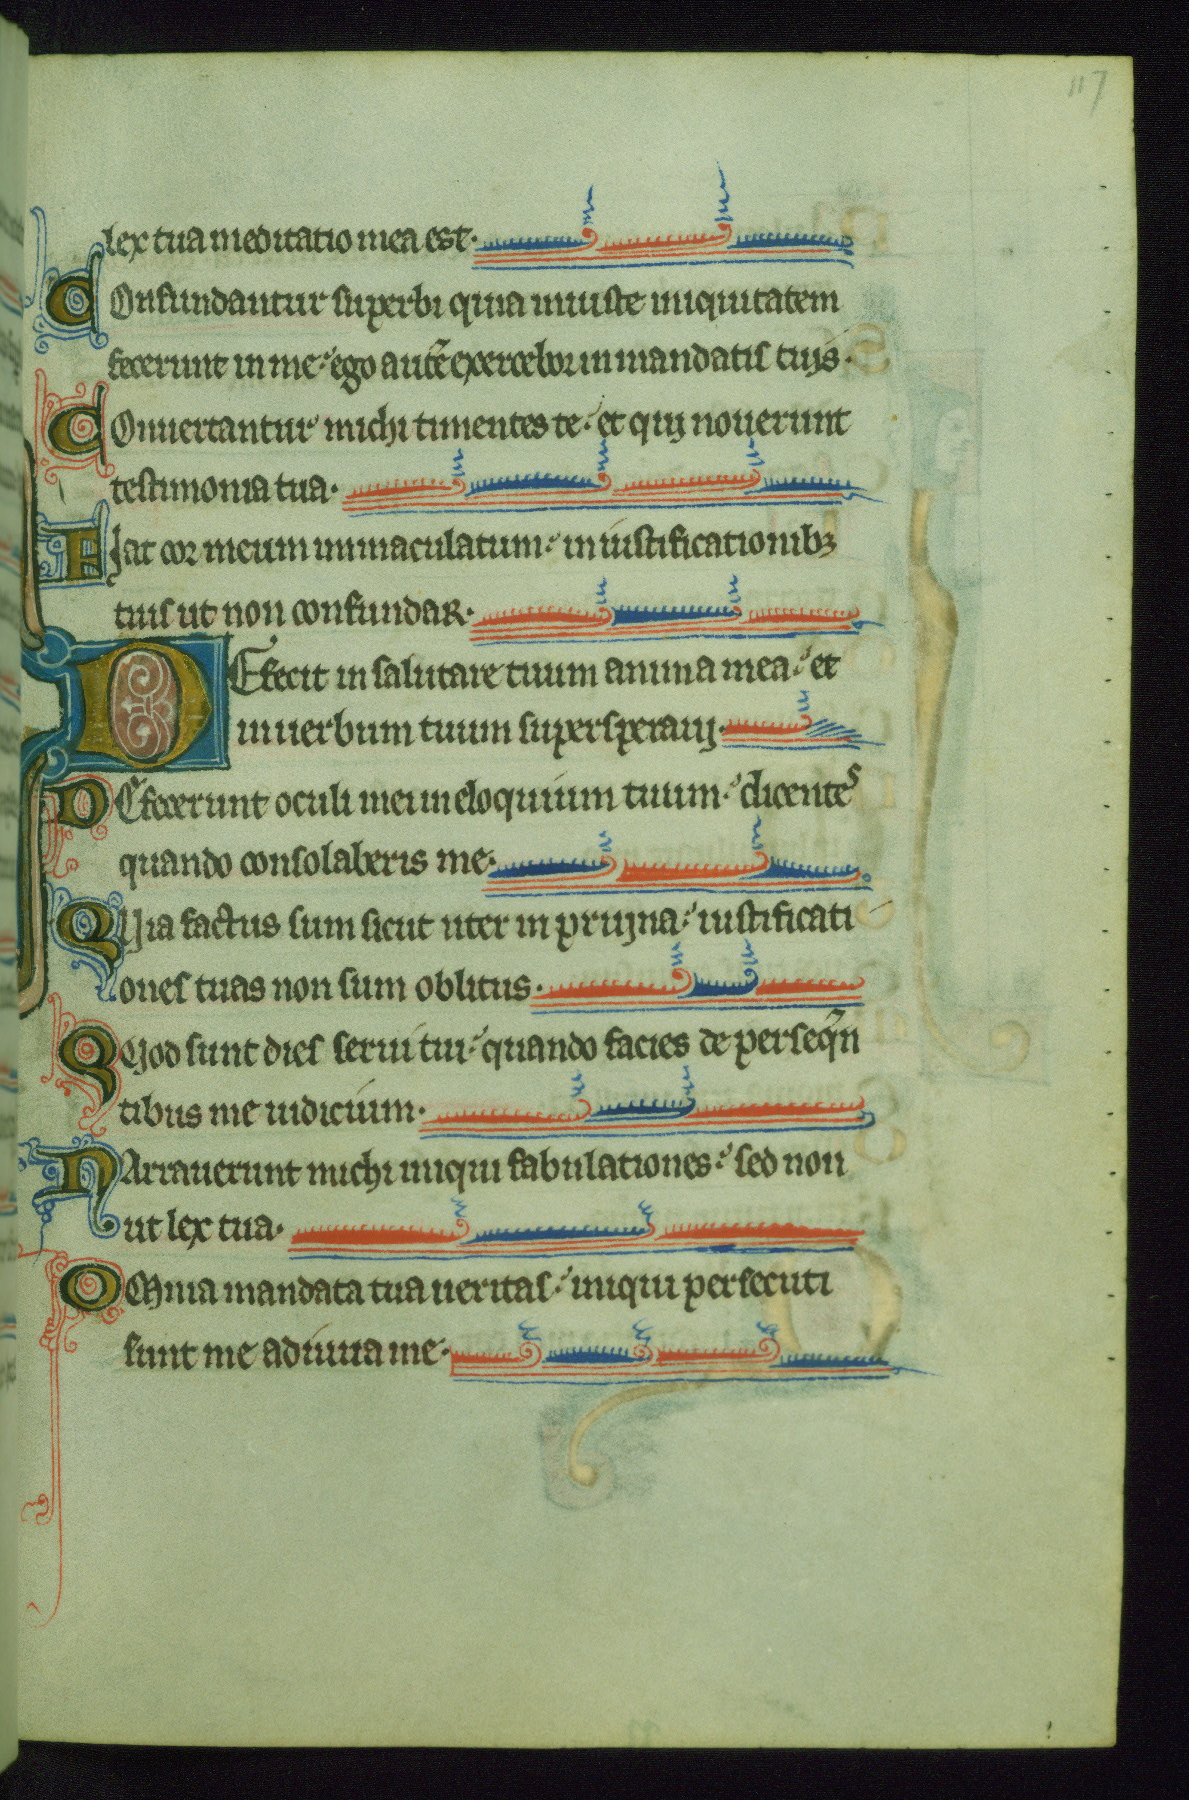 117
lex tua meditatio mea est·
COnfundantur superbi quia iniuste iniquitatem
fecerunt in me· ego autē exercebor in mandatis tuis·
COnuertantur michi timentes te· et qui nouerunt
testimonia tua·
FIat cor meum immaculatum· in iustificationibꝫ
tuis ut non confundar·
DEfecit in salutare tuum anima mea· et
in uerbum tuum supersperaui·
DEfecerunt oculi mei in eloquium tuum· dicentes
quando consolaberis me·
QUia factus sum sicut uter in pruina· iustificati
ones tuas non sum oblitus·
QUod sunt dies serui tui· quando facies de perseq̄n
tibus me iudicium·
NArrauerunt michi iniqui fabulationes· sed non
ut lex tua·
OMnia mandata tua ueritas· iniqui persecuti
sunt me adiuua me·